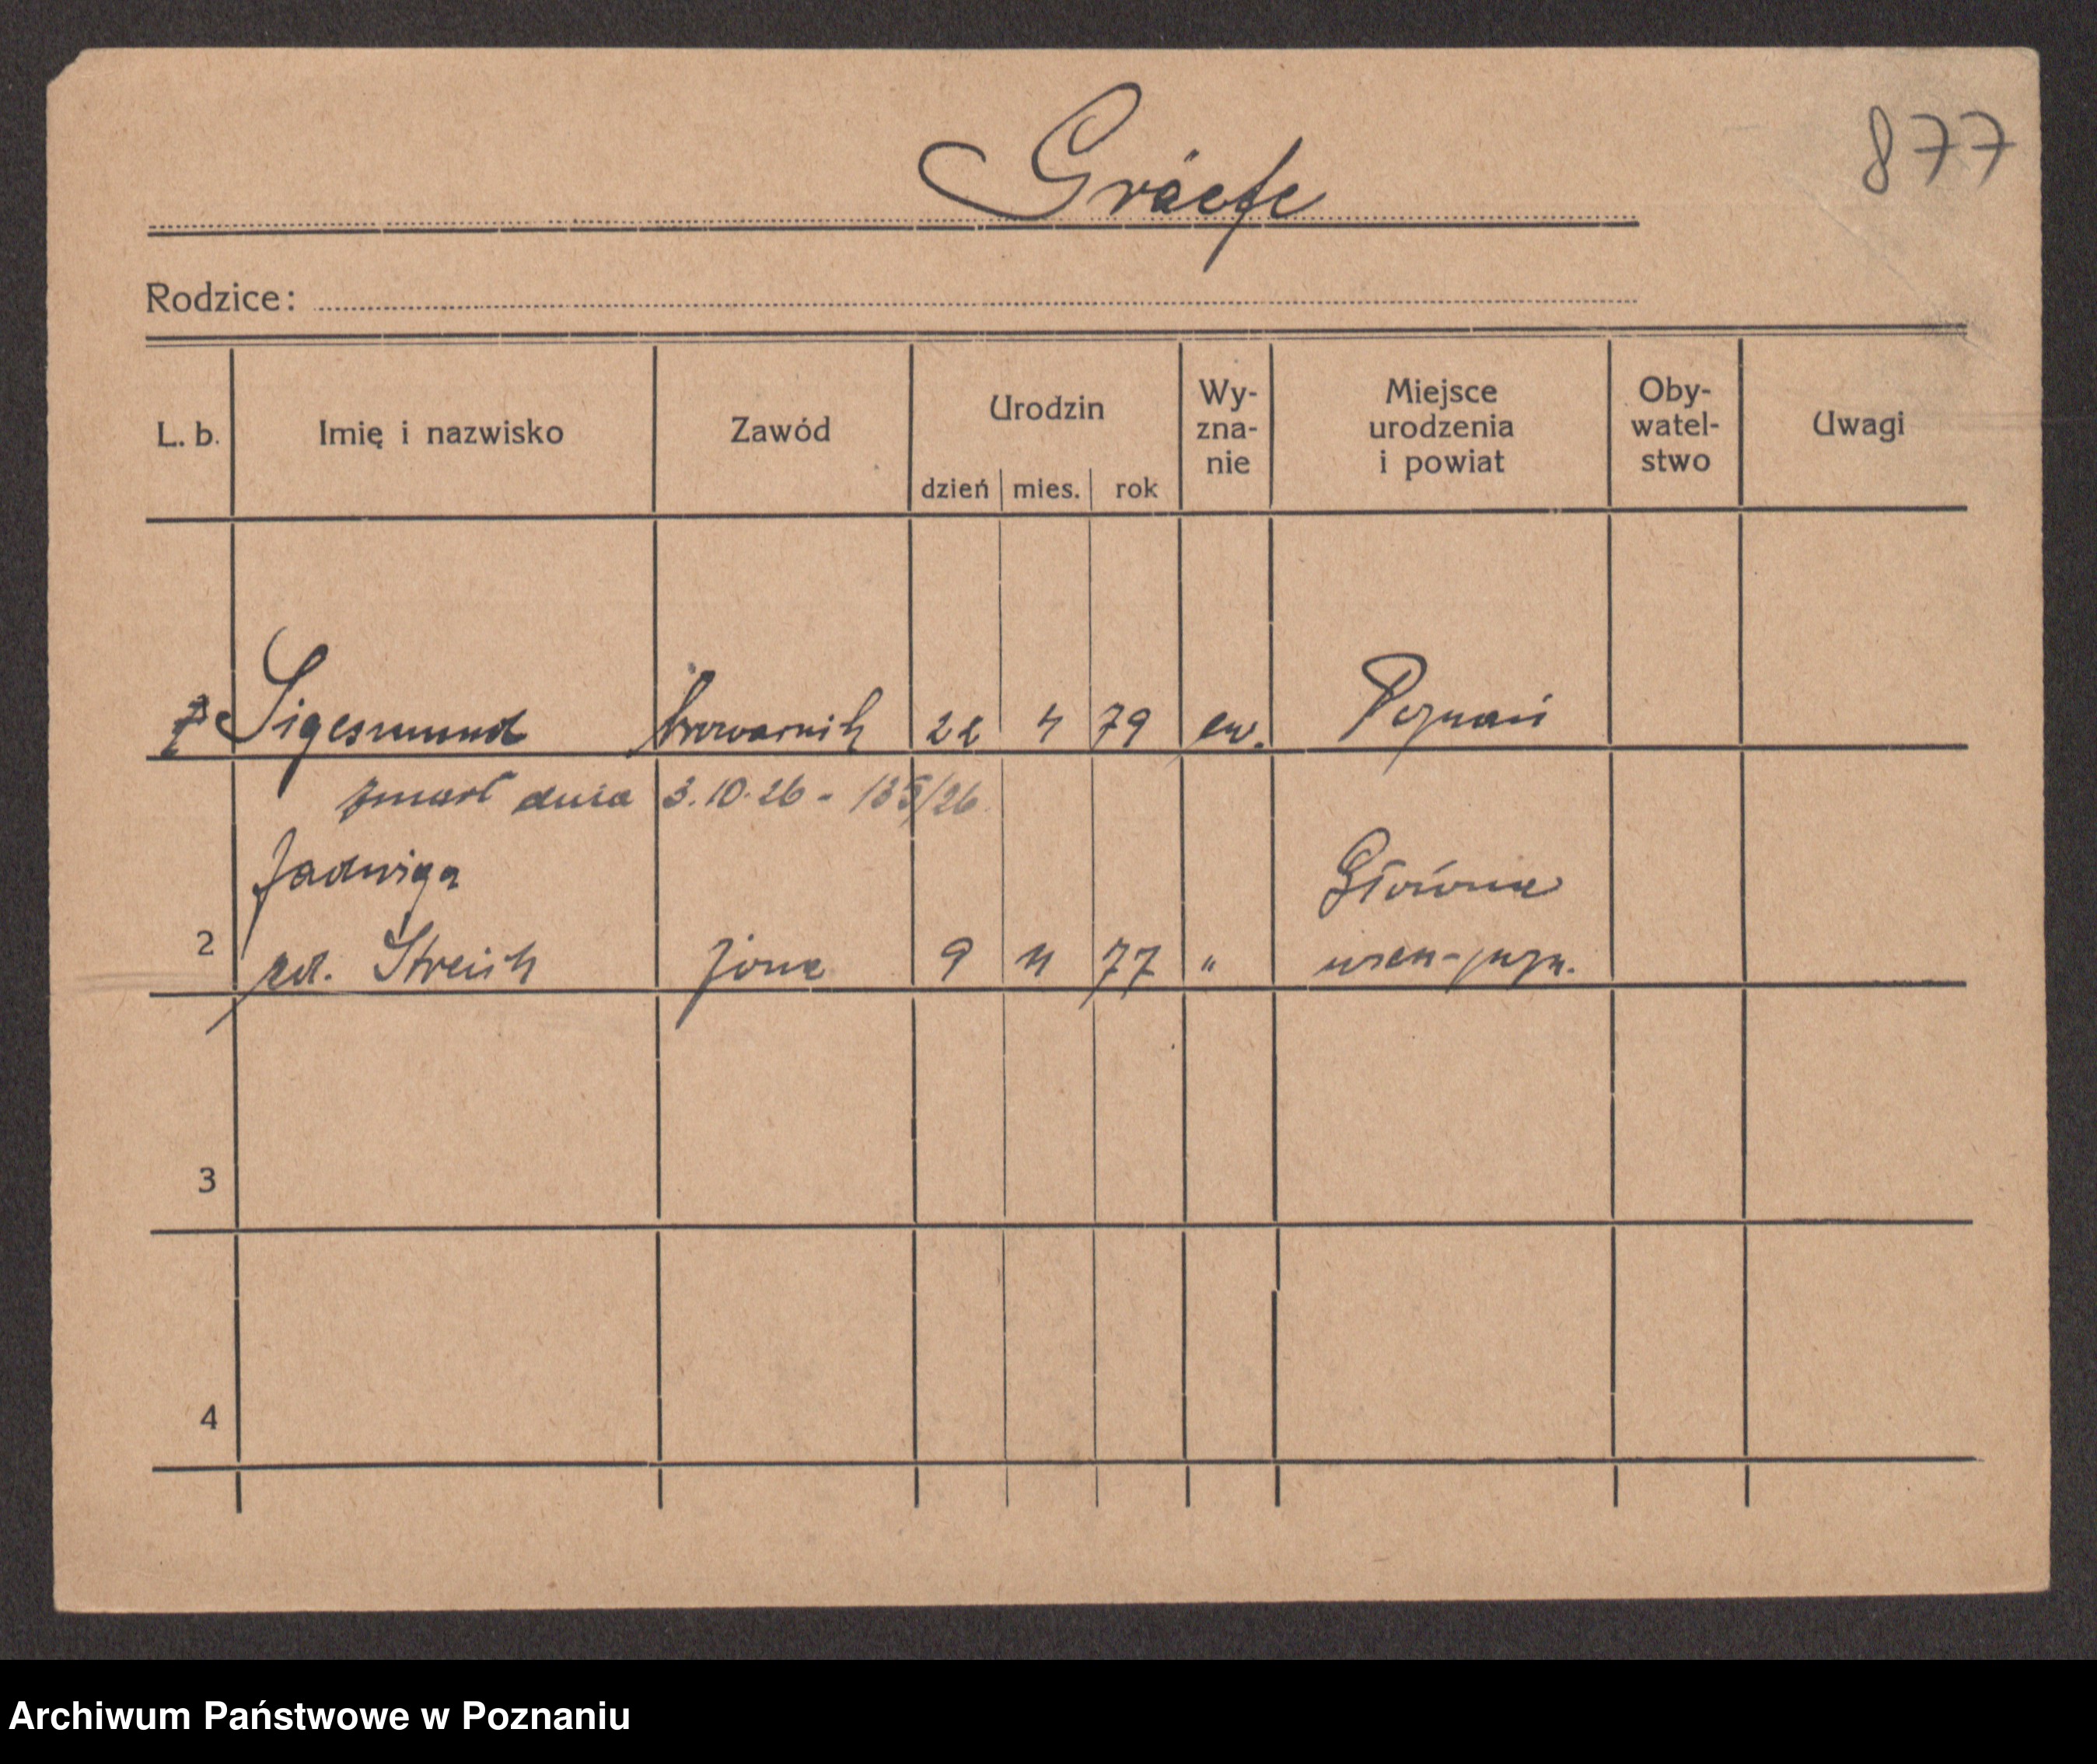 877
Gräefe
Rodzice:
L. b. Imię i nazwisko Zawód Urodzin dzień mies. rok Wy-zna-nie Miejsce urodzenia i powiat Oby-watel-stwo Uwagi
Sigesmund browarnik 22 4 79 ew. Poznań
zmarł dnia 3.10.26 - 135/26
Jadwiga Główna
2 zd. Streich żona 9 11 77 "
3
4
Archiwum Państwowe w Poznaniu